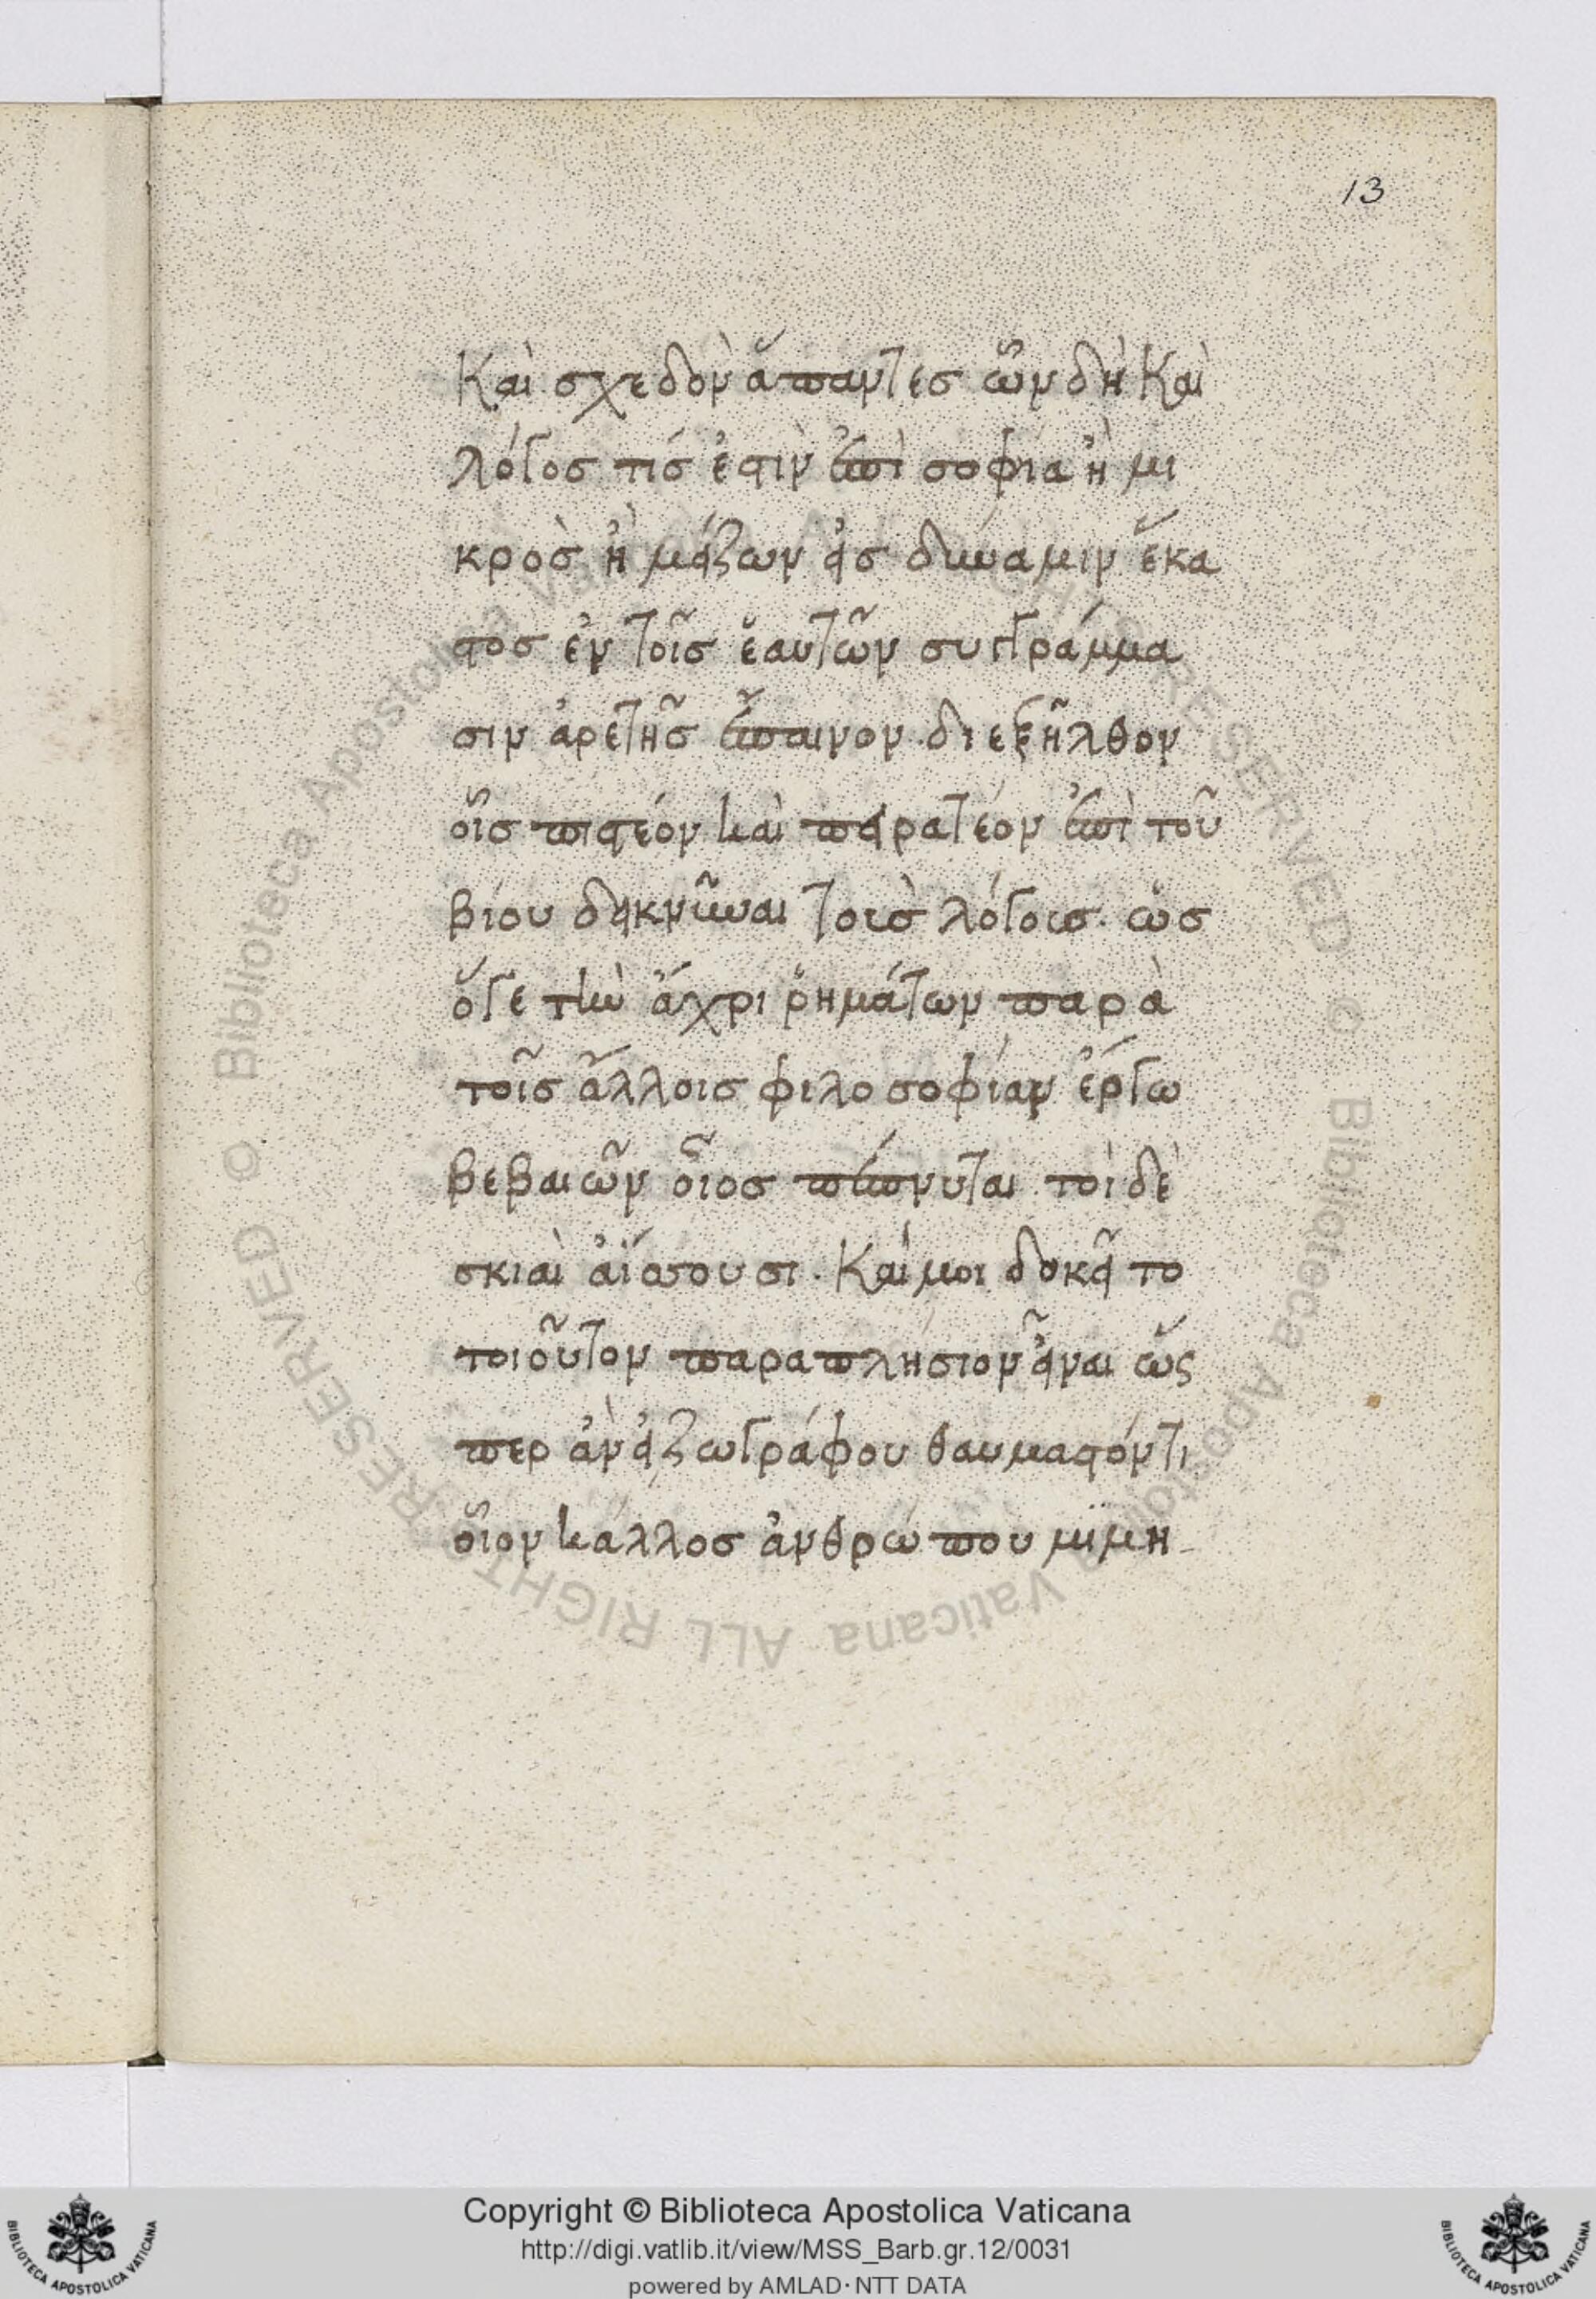 13
Καὶ σχεδὸν ἅπαντες ὧν δὴ καὶ
λόγος τίς ἐστιν ἐπὶ σοφία ἢ μι
κρὸς ἢ μείζων εἰς δύναμιν ἕκα
στος ἐν τοῖς ἑαυτῶν συγγράμμα
σιν ἀρετῆς ἔπαινον διεξῆλθον
οἷς πιστέον καὶ πειρατέον ἐπὶ τοῦ
βίου δεικνῦναι τοὺς λόγους. ὡς
ὅγε τὴν ἄχρι ῥημάτων παρὰ
τοῖς ἄλλοις φιλοσοφίαν ἔργω
βεβαιῶν οἷος πέπνυται τοὶ δὲ
σκιαὶ ἀΐσσουσι. Καί μοι δοκεῖ το
τοιοῦτον παραπλήσιον εἶναι ὥς
περ ἂν εἰ ζωγράφου θαυμαστόν τι
οἷον κάλλος ἀνθρώπου μιμη
Copyright © Biblioteca Apostolica Vaticana
http://digi.vatlib.it/view/MSS_Barb.gr.12/0031
powered by AMLAD·NTT DATA
BIBLIOTECA APOSTOLICA VATICANA
BIBLIOTECA APOSTOLICA VATICANA
© Biblioteca Apostolica Vaticana ALL RIGHTS RESERVED
© Biblioteca Apostolica Vaticana ALL RIGHT RESERVED